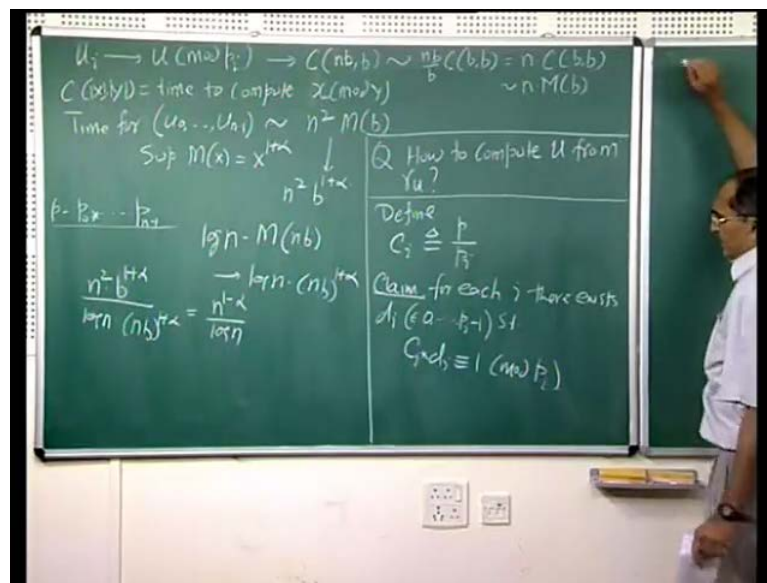 u_i → U (mod p_i) → C(nb, b) ~ nb/b C(b,b) = n · C(b,b)
~ n · M(b)
C(|x|,|y|) = time to compute x(mod y)
Time for (u_0, ..., u_{n-1}) ~ n² M(b)
Sup M(x) = x^{1+α}
↓
n² b^{1+α}
p = p_0 * ... p_{n-1}
log n - M(nb)
→ log n · (nb)^{1+α}
n² · b^{1+α} / log n (nb)^{1+α} = n^{1-α} / log n
Q How to compute U from
r_u?
Define
C_i ≜ p / p_i
Claim for each i there exists
d_i (∈ 0 ... p_i-1) st
C_i * d_i ≡ 1 (mod p_i)